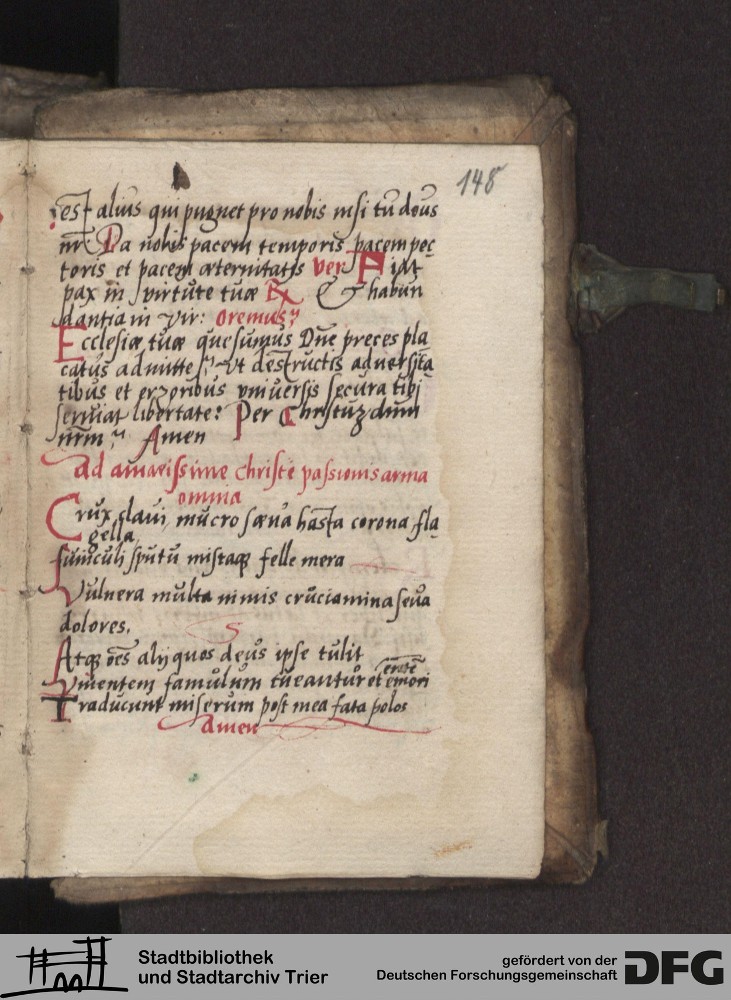 148
est alius qui pugnet pro nobis nisi tū deus
nr̄. Da nobis pacem temporis, pacem pec
toris et pacem æternitatis Ver Fiat
pax in virtute tuæ Rx Et habun
dantia in Tur: Oremus
Ecclesiæ tuæ quesumus Dn̄e preces pla
catus admitte, Vt destructis adversita
tibus et erroribus universis secura tibi
serviat libertate: Per Christuz dnm
nr̄m Amen
Ad amarissime christe passionis arma
omnia
Crux, clavi, mucro sæva hasta corona fla
gella,
funiculi sputū mistaqꝫ felle mera
Vulnera multa nimis crūciamina seva
dolores.
Atqꝫ oēs alij quos deus ipse tulit
Viventem famulum tueantur et
Traducunt miserum post mea fata polos
Amen
Stadtbibliothek
und Stadtarchiv Trier
gefördert von der
Deutschen Forschungsgemeinschaft
DFG